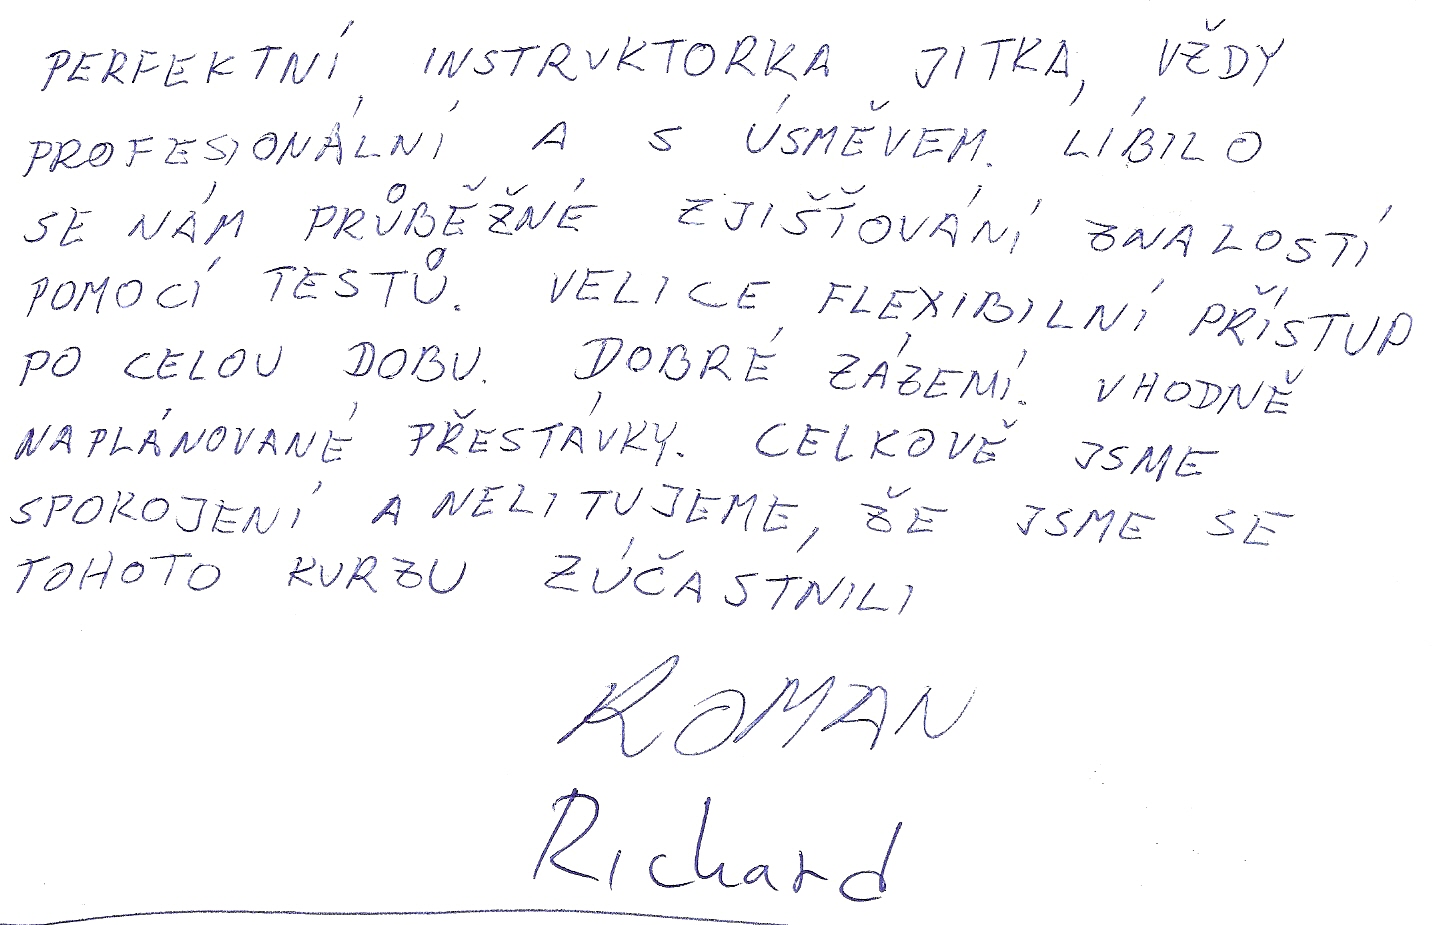 PERFEKTNÍ INSTRUKTORKA JITKA, VŽDY
PROFESIONÁLNÍ A S ÚSMĚVEM. LÍBILO
SE NÁM PRŮBĚŽNÉ ZJIŠŤOVÁNÍ ZNALOSTÍ
POMOCÍ TESTŮ. VELICE FLEXIBILNÍ PŘÍSTUP
PO CELOU DOBU. DOBRÉ ZÁZEMÍ. VHODNĚ
NAPLÁNOVANÉ PŘESTÁVKY. CELKOVĚ JSME
SPOKOJENÍ A NELITUJEME, ŽE JSME SE
TOHOTO KURZU ZÚČASTNILI
ROMAN
Richard